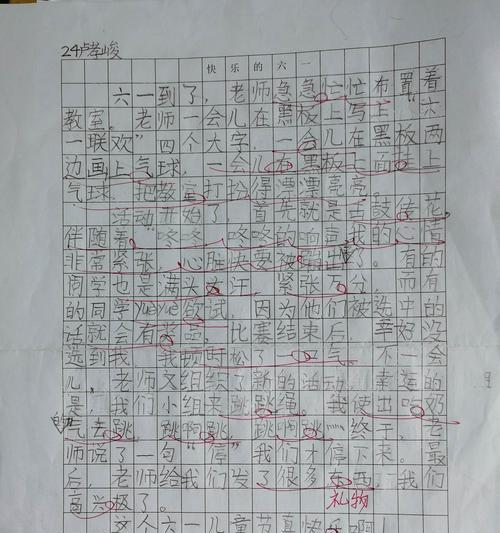 24卢孝峻
快乐的六一
六一到了，老师急急忙忙布置着
教室。老师一会儿在黑板上写上“六
一联欢”四个大字，一会儿在黑板两
边画上气球，一会儿在黑板上面挂上
气球，把教室打扮得漂漂亮亮。
活动开始了，首先就是击鼓传花
伴随着“咚咚，咚咚的响声我的心情
非常紧张，心脏快要蹦出了。有的
同学也是满头大汗，紧张万分，而有
的同学yuèyuè欲试，因为他们被选中的
话就会有奖品。比赛结束后，幸好没
选到我，我顿时松了一口气。不一会
儿，老师又组织了新的活动，幸运的
是，我们小组来跳跳绳。我使出吃奶
的气去跳，跳啊跳，跳啊跳……终于，老
师说了一句“停”我们才停下来。最
后，老师给我们发了很多东西，我们
高兴极了。
礼物
这个六一儿童节真快乐啊！